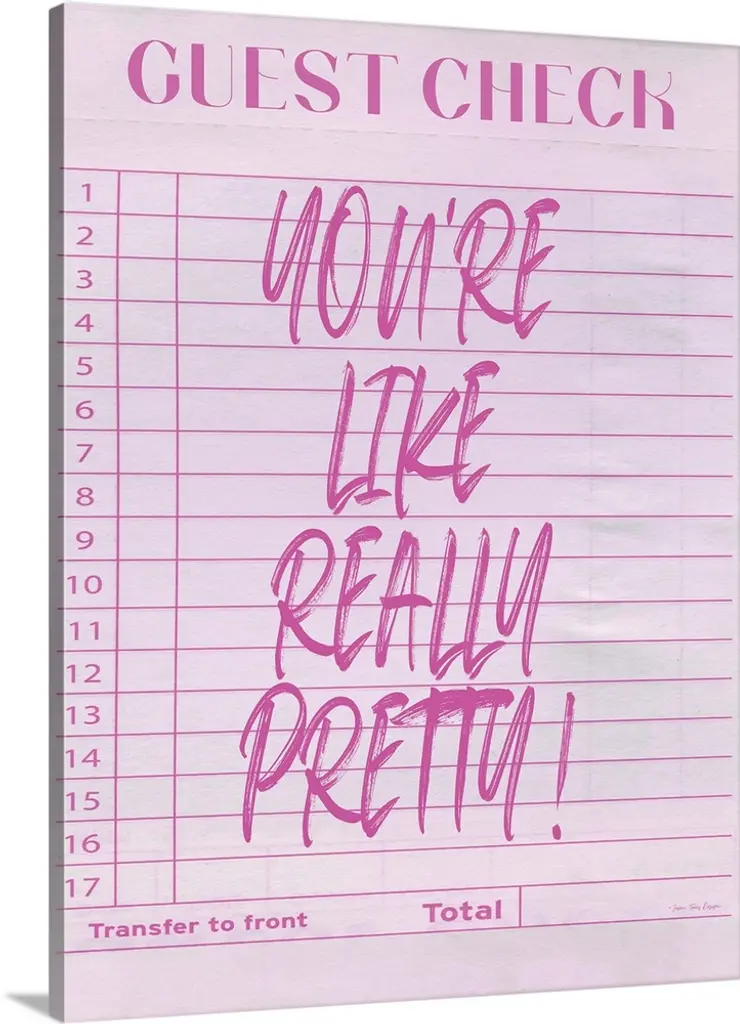 GUEST CHECK
1
2
3
4
5
6
7
8
9
10
11
12
13
14
15
16
17
YOU'RE
LIKE
REALLY
PRETTY!
Transfer to front
Total